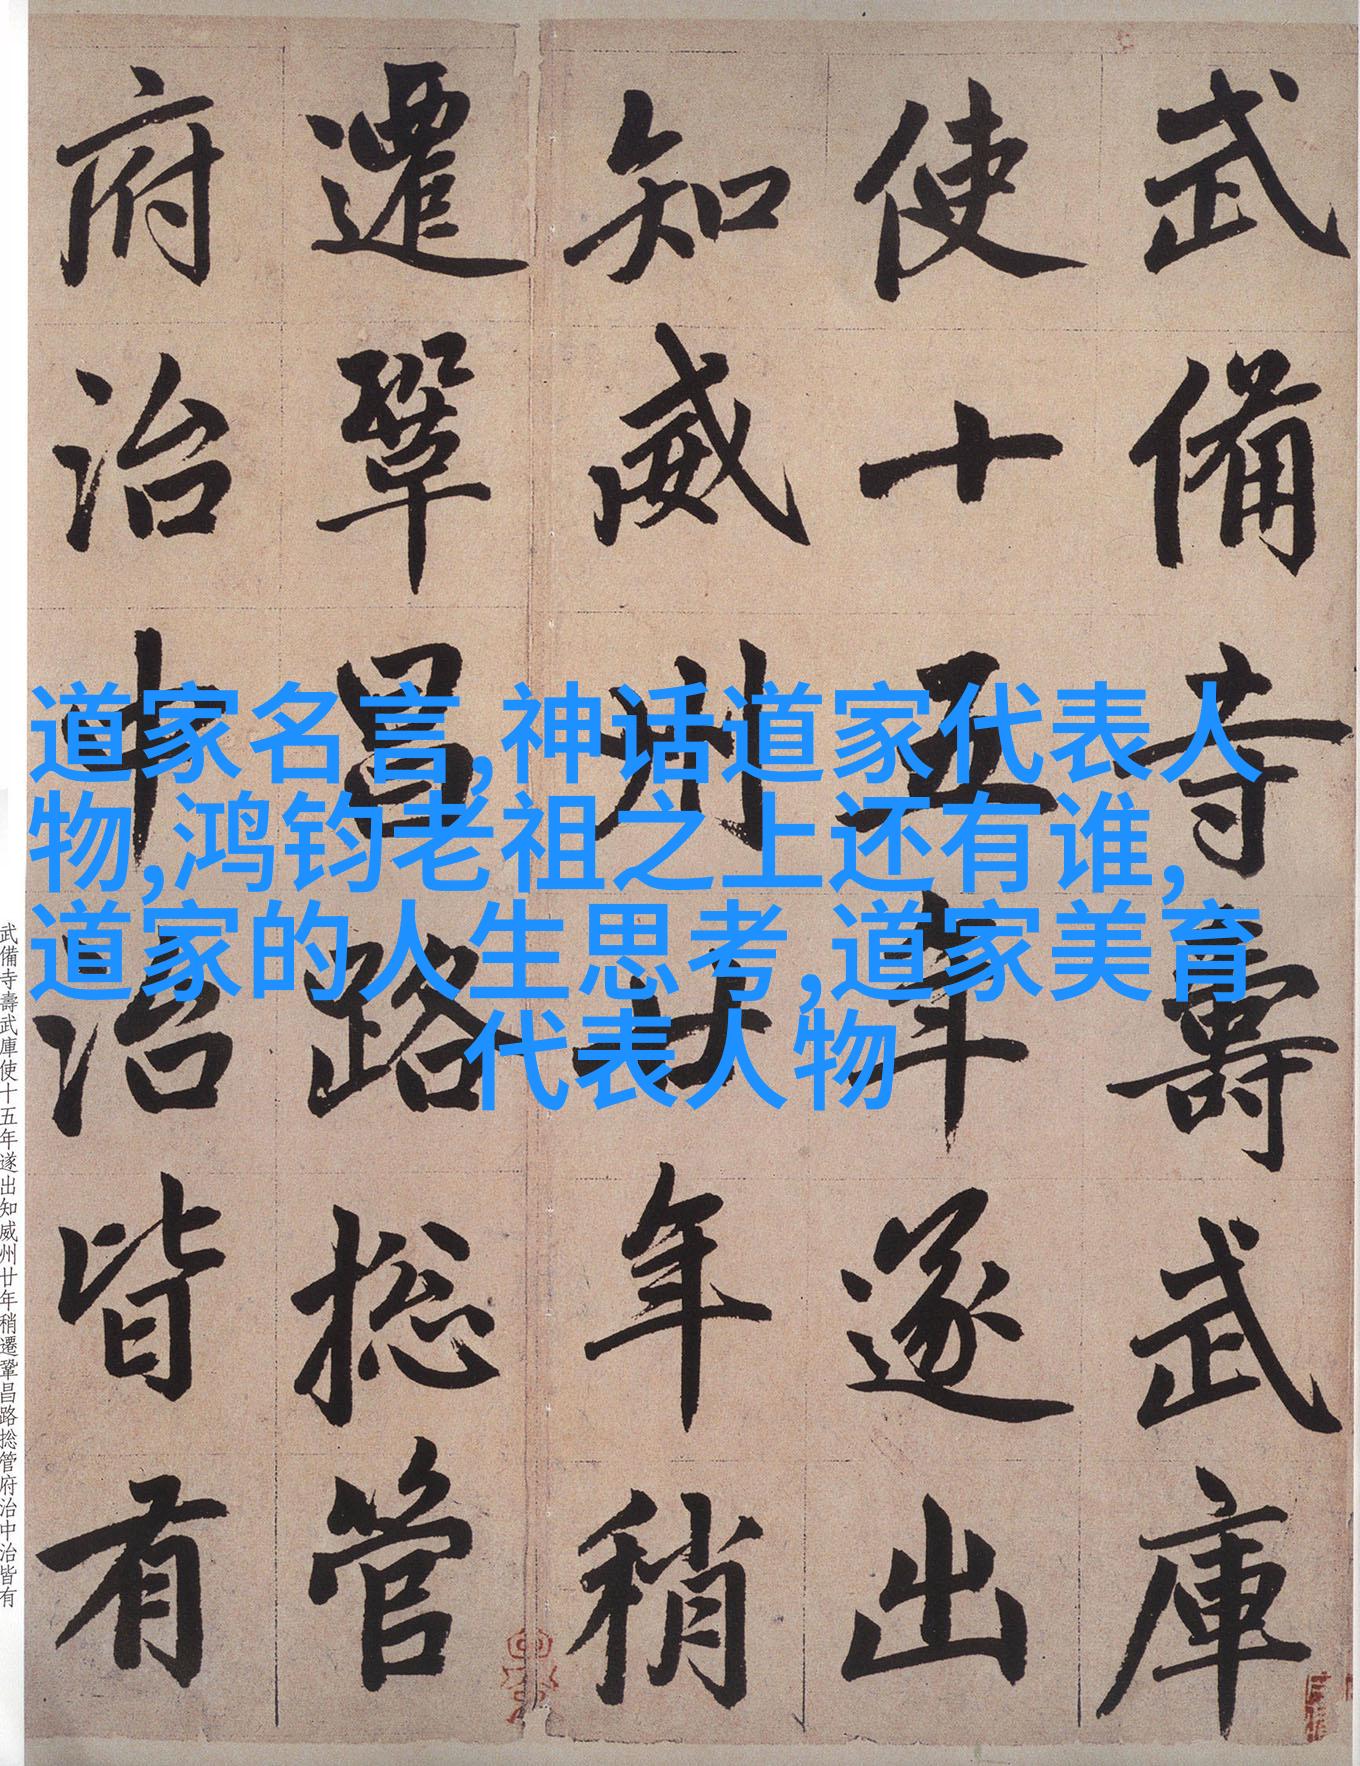 武備寺壽武庫
使十五年遂出
知威州廿年稍
遷鞏昌路捴管
府治中治皆有
道家名言,神话道家代表人
物,鸿钧老祖之上还有谁,
道家的人生思考,道家美育
代表人物
武備寺壽武庫使十五年遂出知威州廿年稍遷鞏昌路捴管府治中治皆有